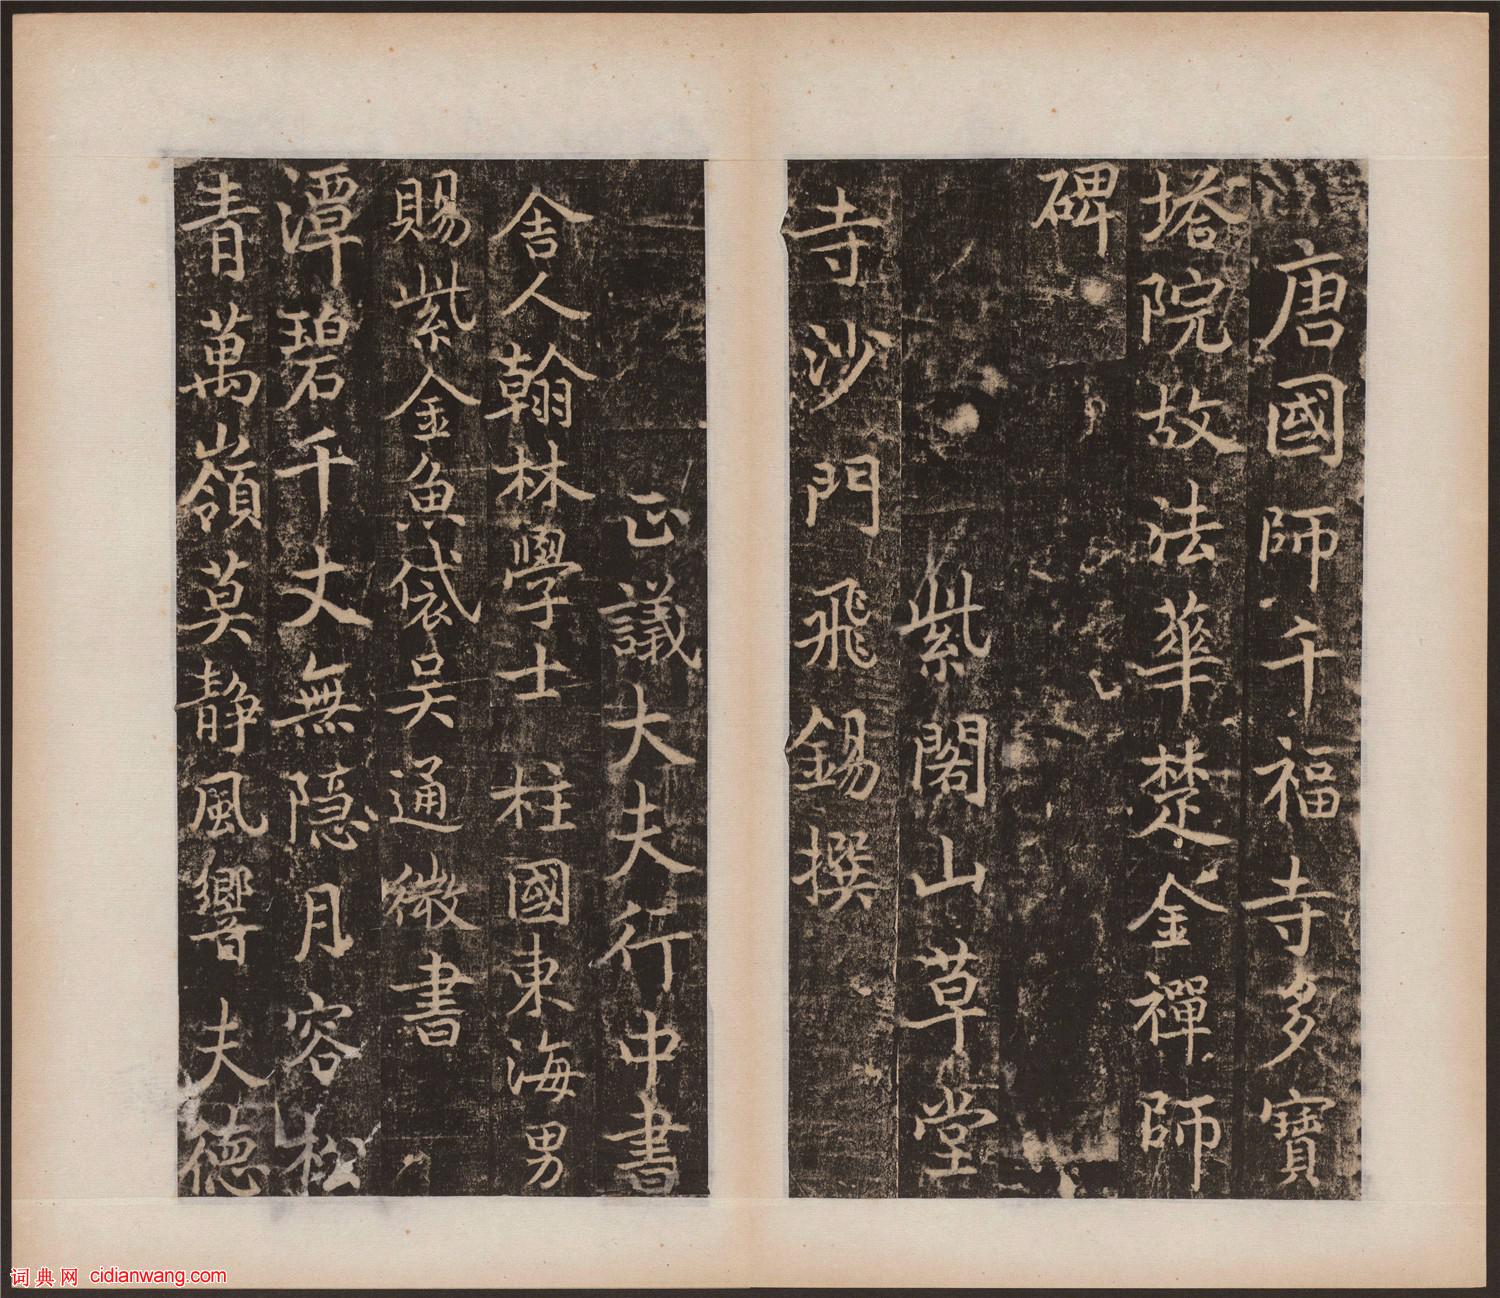 唐國師千福寺多寶
塔院故法華楚金禪師
碑
紫閣山草堂
寺沙門飛錫撰
正議大夫行中書
舍人翰林學士柱國東海男
賜紫金魚袋吳通微書
潭碧千丈無隐月容松
青萬嶺莫静風響夫德
词典网 cidianwang.com